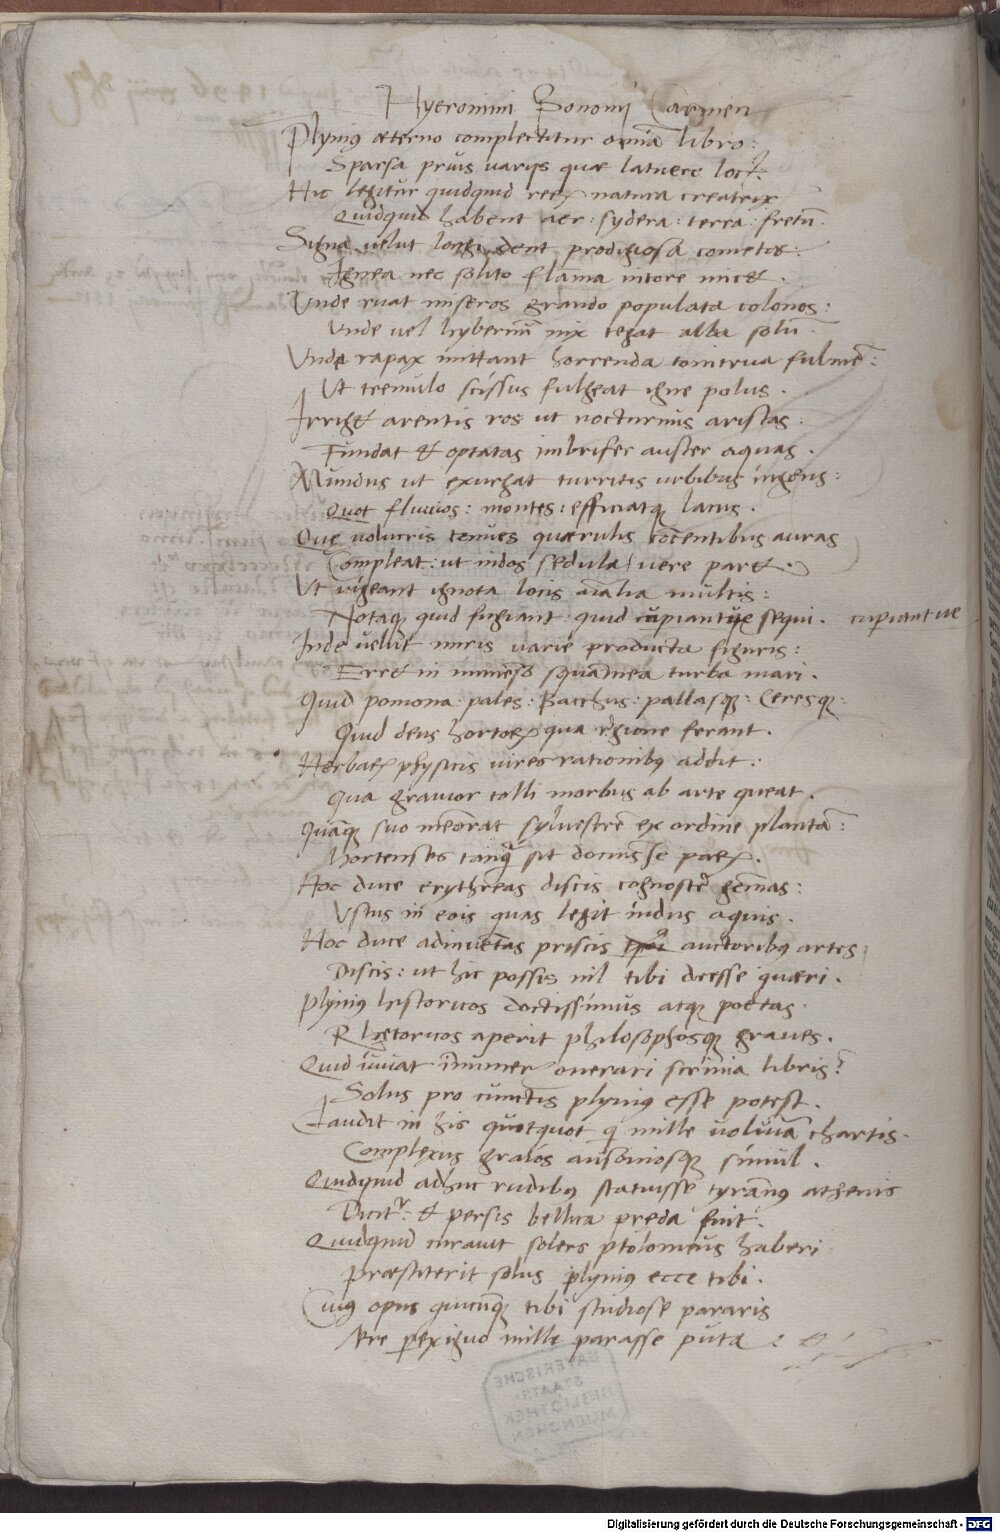 Hyeronimi Bononij Carmen
Plyniꝰ æterno complectitur om̄ia libro:
Sparsa prius uarijs quæ latuere locꝭ.
Hic legitur quidquid reꝝ natura creatrix
Quidquid habent aer: sydera: terra: fretū.
Signa velut longi dent prodigiosa cometæ:
Ignea nec solito flāma nitore micet.
Vnde ruat miseros grando populata colonos:
Vnde vel hybernū nix tegat alba solū.
Vnde rapax mittant horrenda tonitrua fulmē:
Ut tremulo scissus fulgeat igne polus.
Irriget arentis ros ut nocturnus aristas.
Fundat & optatas imbrifer auster aquas.
Mundus ut exurgat turritis urbibus ingens:
Quot fluuios: montes: efficiatqꝫ lacus.
Que volucris tenues quærulis cōcentibus auras
Compleat: ut nidos sedula uere paret.
Ut uigeant ignota locis aīalia multis:
Notaqꝫ quid fugiant: quid cupiantue sequi. cupiantue
Inde velut miris varie producta figuris:
Erret in immēso squāmea turba mari.
Quid pomona: pales: Bacchus: pallasqꝫ: Ceresqꝫ:
Quid deus hortoꝝ qua regione ferant.
Herbaꝝ physicis uires rationibꝰ addit:
Qua grauior tolli morbus ab arte queat.
Quāqꝫ suo memorat syluestrē ex ordine plantā:
Hortenses tanqꝫ sit domuisse paꝝ.
Hoc duce erythreas discis cognoscere gēmas:
Vstus in eois quas legit indus aquis.
Hoc duce adinuentas priscis auctoribꝰ artes:
Discis: ut hic possis nil tibi deesse quæri.
Plyniꝰ historicos doctissimus atqꝫ poetas.
Rhetoricos aperit philosophosqꝫ graues.
Quid iuuat īnumeris onerari scrinia libris?
Solus pro cunctis plynius esse potest.
Claudit in his quotquot mille uoluīa chartis.
Complexus graios ausoniosqꝫ simul.
Quidquid adhuc rudibꝰ statuisse tyrannꝰ athenis
Dicitʳ: & persis bellica preda fuit.
Quidquid curauit solers ptolomeus haberi
Præstiterit solus plyniꝰ ecce tibi.
Cuiꝰ opus quicūqꝫ tibi studiose pararis
Aere perexiguo mille parasse puta:
BAYERISCHE
STAATS-
BIBLIOTHEK
MUENCHEN
Digitalisierung gefördert durch die Deutsche Forschungsgemeinschaft - DFG